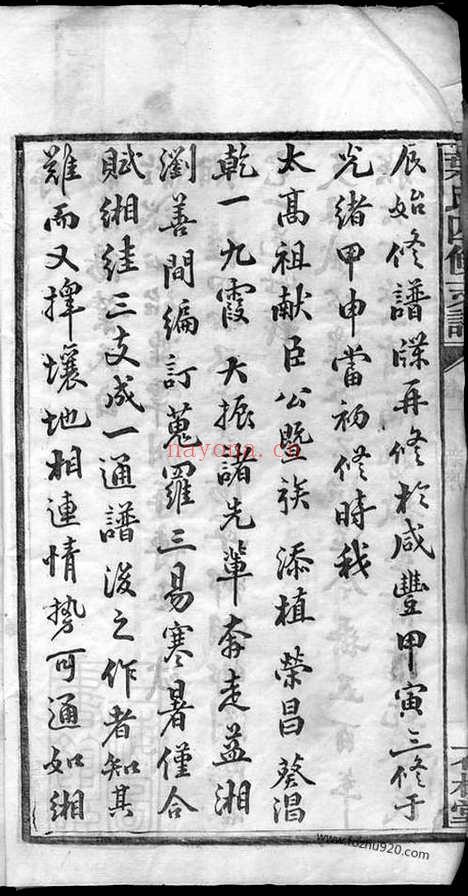 辰始修譜牒再修於咸豐甲寅三修于
光緒甲申當初修時我
太高祖献臣公暨族添植榮昌葵淐
乾一九霞大振諸先輩奔走益湘
瀏善間編訂蒐羅三易寒暑僅合
賦緗絓三支成一通譜後之作者知其
難而又擇壤地相連情勢可通如緗
氏四修支譜
nayona.cn
www.fozhu920.com